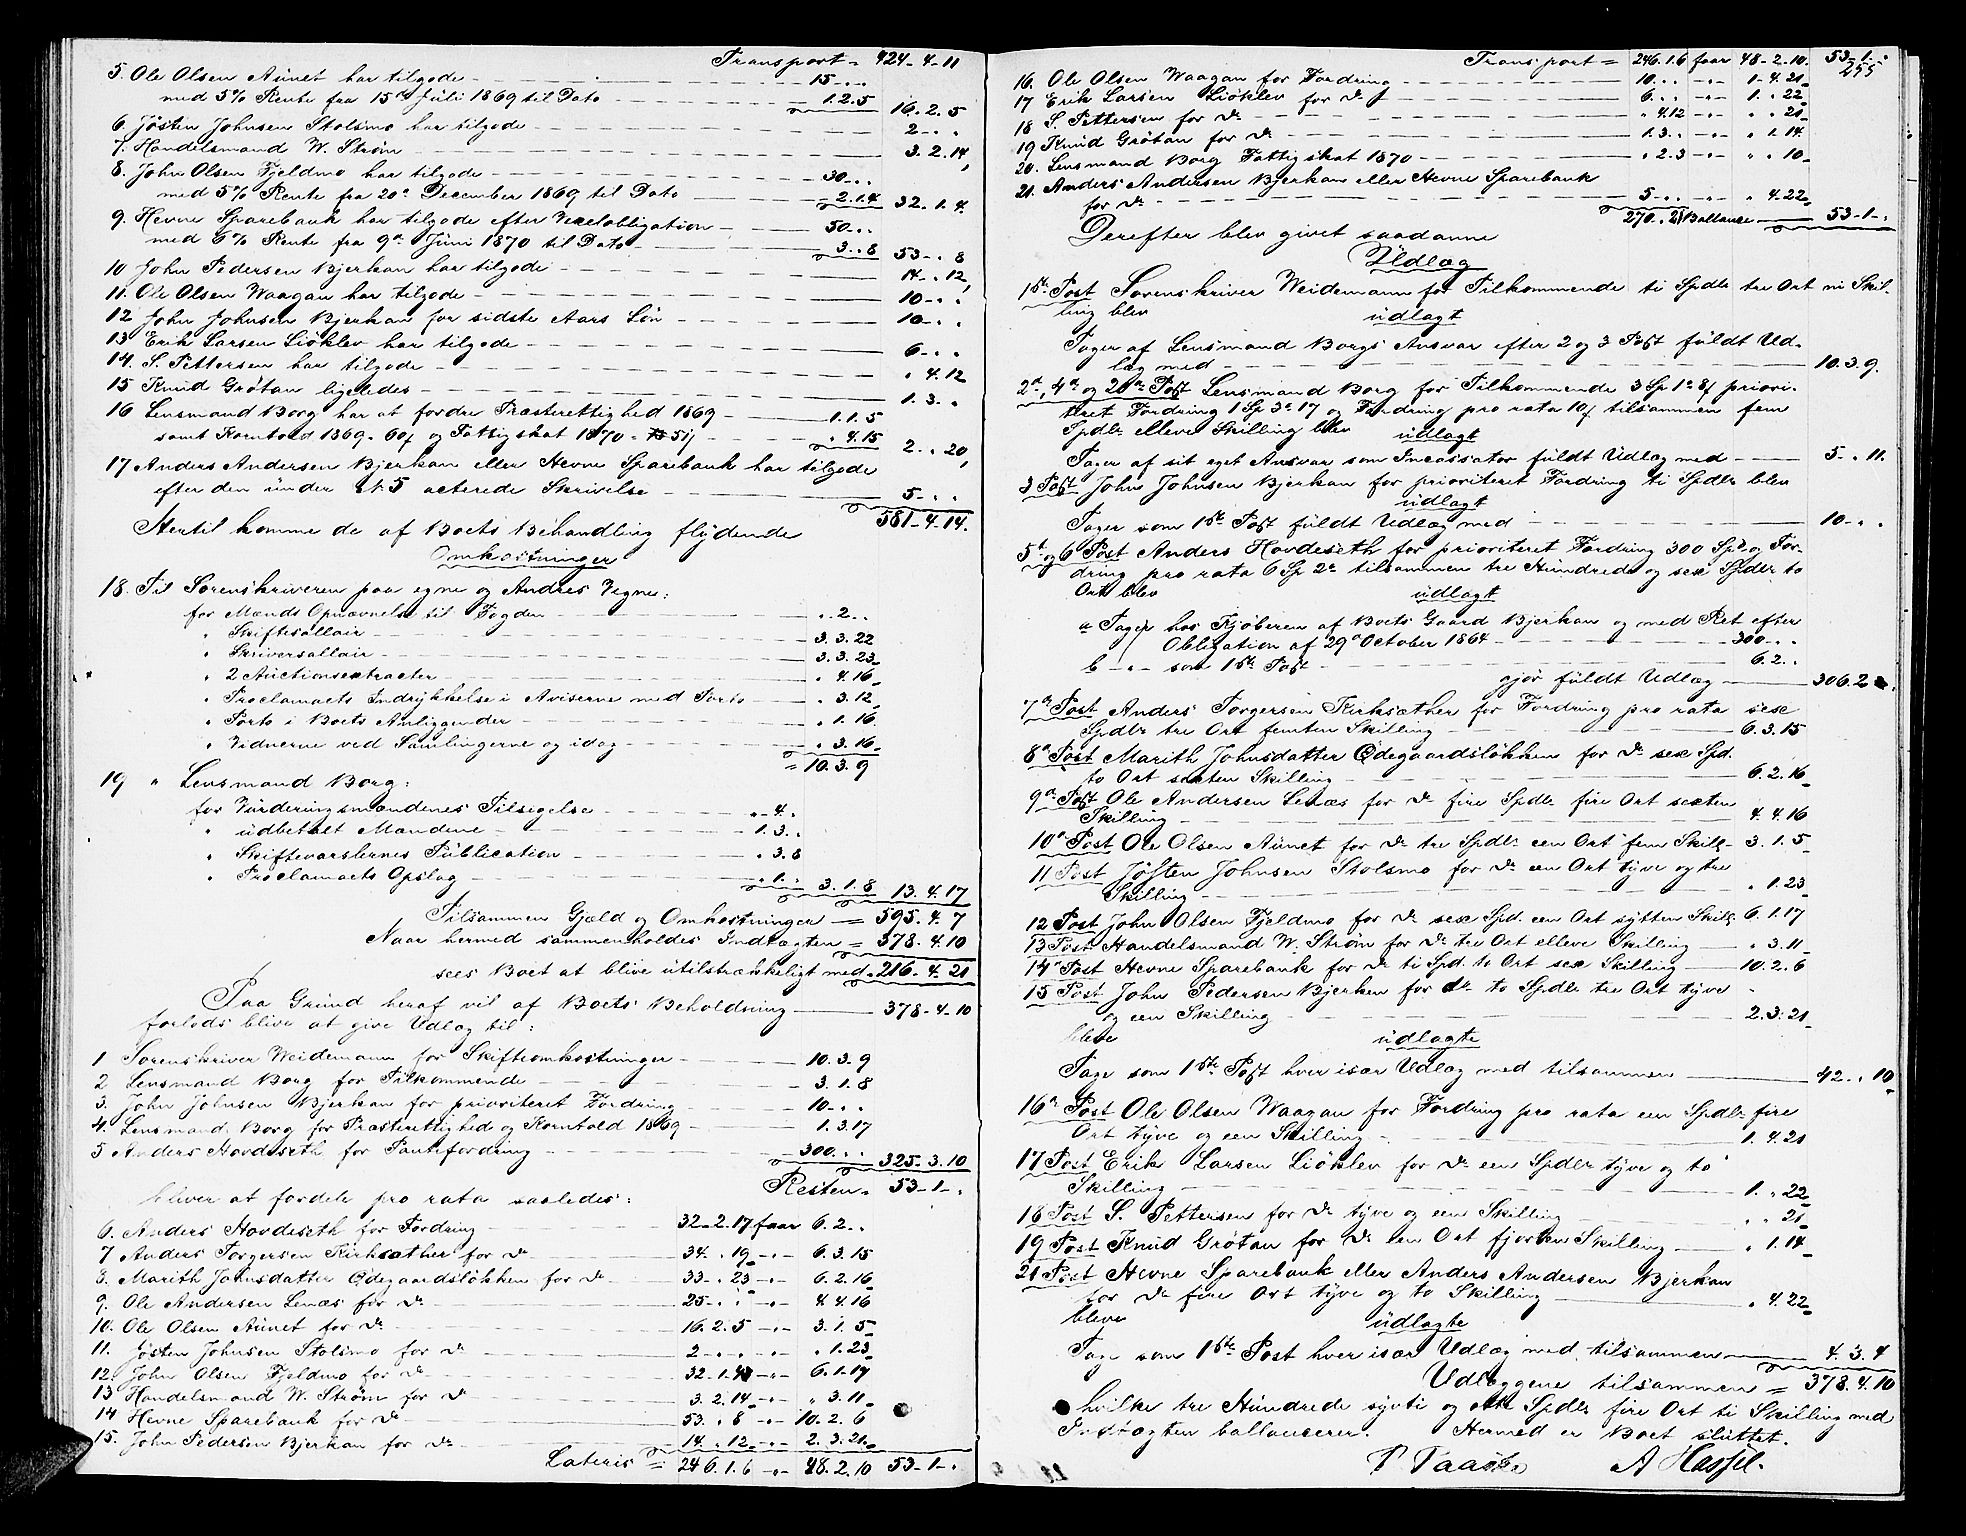 Transport = 424-4-11
5. Ole Olsen Aunet har tilgode - 15-"."
med 5% Rente fra 15de Juli 1869 til Dato - 1.2.5 16.2.5
6. Jøsten Johnsen Stolsmo har tilgode - 2-"."
7. Handelsmand W. Strøm - 3.2.14
8. John Olsen Fjeldmo har tilgode - 30-"."
med 5% Rente fra 20de December 1869 til Dato - 2.1.4 32.1.4.
9. Hevne Sparebank har tilgode efter Vexelobligation - 50."."
med 6% Rente fra 9de Juni 1870 til Dato - 3.".8 53-".8
10 John Pedersen Bjerkan har tilgode - 14-".12
11. Ole Olsen Waagan har tilgode - 10-"."
12 John Johnsen Bjerkan for sidste Aars Løn - 10-"."
13 Erik Larsen Liøklev har tilgode - 6-"."
14. S. Pettersen har tilgode - ".4.12
15 Knud Grøtan ligeledes - 1.3."
16 Lensmand Borg har at fordre Præsterettighed 1869 - 1.1.5
samt Korntold 1869. 60ß og Fattigskat 1870 - 51ß ".4.15 2.".20
17 Anders Andersen Bjerkan eller Hevne Sparebank har tilgode
efter den under N. 5 acterede Skrivelse - 5-"."
581-4.14.
Hertil komme de af Boets Behandling flydende
Omkostninger
18. Til Sorenskriveren paa egne og Andres Vegne:
for Mænds Opnævnelse til Fogden ".2."
" Skiftesallair - 3.3.22
" Skriversallair - 3.3.23
" 2 Auctionsextracter - ".4.16
" Proclamaets Indrykkelse i Aviserne med Porto - ".3.12
" Porto i Boets Anliggender ".1.16.
" Vidnerne ved Samlingerne og idag - ".3.16
= 10.3.9
19 " Lensmand Borg:
for Vurderingsmændenes Tilsigelse - ".4."
" udbetalt Mændene - 1.3."
" Skiftevarslernes Publication - ".3.8
" Proclamaets Opslag - ".1." 3.1.8 13.4.17
Tilsammen Gjæld og Omkostninger = 595.4.7
Naar hermed sammenholdes Indtægten = 378.4.10
sees Boet at blive utilstrækkeligt med = 216-4.21
Paa Grund heraf vil af Boets Beholdning - 378-4-10
forlods blive at give Udlæg til:
1 Sorenskriver Weidemann for Skifteomkostninger - 10.3.9
2 Lensmand Borg for Tilkommende - 3.1.8
3. John Johnsen Bjerkan for prioriteret Fordring - 10-"."
4. Lensmand Borg for Præsterettighed og Korntold 1869 - 1.3.17
5 Anders Hovdeseth for Pantefordring - 300."." 325-3.10
Resten = 53-1-".
bliver at fordele pro rata saaledes:
6. Anders Hovdeseth for Fordring 32-2.17 faar 6.2."
7 Anders Torgersen Kirksæther for do 34.".19 -"- 6.3.15
8. Marith Johnsdatter Ødegaardsløkken for do 33-".23 -"- 6.2.16
9. Ole Andersen Lenæs for do 25-"." -"- 4.4.16
10. Ole Olsen Aunet for do 16.2.5 -"- 3.1.5
11. Jøsten Johnsen Stolsmo for do 2-"." -"- ".1.23
12. John Olsen Fjeldmo for do 32-1.4 -"- 6.1.17
13 Handelsmand W. Strøm for do 3.2.14 -"- ".3.11
14 Hevne Sparebank for do 53.".8 -"- 10.2.6
15. John Pedersen Bjerkan for do 14.".12 -"- 2.3.21
Lateris = 246.1.6 -"- 48.2.10 53-1-".
Transport = 246.1.6 faar 48-2-10. 53-1-"
255
16. Ole Olsen Waagan for Fordring - 10."." -"- 1-4.21
17 Erik Larsen Liøklev for do - 6."." -"- 1.".22
18 S. Pettersen for do - ".4.12 -"- ".".21
19 Knud Grøtan for do - 1.3." -"- ".1.14.
20. Lensmand Borg Fattigskat 1870 - ".2.3 -"- ".".10
21. Anders Andersen Bjerkan eller Hevne Sparebank
for do - 5-"." -"- ".4.22
270.".21 Ballance 53-1-".
Derefter blev givet saadanne
Udlæg
1ste Post Sorenskriver Weidemann for Tilkommende ti Spdlr tre Ort ni Skil-
ling blev udlagt
Tager af Lensmand Borgs Ansvar efter 2 og 3 Post fuldt Ud-
læg med - 10.3.9.
2den, 4de og 20de Post Lensmand Borg for Tilkommende 3 Sp 1 o 8ß priori-
teret Fordring 1 Sp 3 o 17 og Fordring pro rata 10ß tilsammen fem
Spdlr elleve Skilling blev udlagt
Tager af sit eget Ansvar som Incassator fuldt Udlæg med - 5-".11.
3 Post John Johnsen Bjerkan for prioriteret Fordring ti Spdlr blev
udlagt
Tager som 1ste Post fuldt Udlæg med - 10-"."
5te og 6 Post Anders Hovdeseth for prioriteret Fordring 300 Spd og For-
dring pro rata 6 Sp 2 o tilsammen tre Hundrede og sex Spdlr to
Ort blev udlagt
a Tager hos Kjøberen af Boets Gaard Bjerkan og med Ret efter
Obligation af 29de October 1864 - 300-"."
b -"- som 1ste Post - 6.2."
gjør fuldt Udlæg - 306.2.".
7de Post Anders Torgersen Kirksæther for Fordring pro rata sex
Spdlr tre Ort femten Skilling - 6.3.15
8de Post Marith Johnsdatter Ødegaardsløkken for do sex Spd.
to Ort sexten Skilling - 6.2.16
9de Post Ole Andersen Lenæs for do fire Spdlr fire Ort sexten
Skilling - 4.4.16
10de Post Ole Olsen Aunet for do tre Spdlr een Ort fem Skill. - 3.1.5
11 Post Jøsten Johnsen Stolsmo for do een Ort tyve og tre
Skilling - ".1.23
12 Post John Olsen Fjeldmo for do sex Spd. een Ort sytten Skill. 6.1.17
13 Post Handelsmand W. Strøm for do tre Ort elleve Skilling - ".3.11
14de Post Hevne Sparebank for do ti Spd. to Ort sex Skilling - 10.2.6
15 Post John Pedersen Bjerken for do to Spdlr tre Ort tyve
og een Skilling - 2.3.21
bleve udlagte
Tage som 1ste Post hver især Udlæg med tilsammen - 42.".10
16de Post Ole Olsen Waagan for Fordring pro rata een Spdlr fire
Ort tyve og een Skilling - 1.4.21
17 Post Erik Larsen Liøklev for do een Spdlr tyve og to
Skilling - 1.".22
18 Post S. Pettersen for do tyve og een Skilling ".".21
19 Post Knud Grøtan for do een Ort fjorten Skilling - ".1.14
21 Post Hevne Sparebank eller Anders Andersen Bjerkan
for do fire Ort tyve og to Skilling - ".4.22
bleve udlagte
Tage som 1ste Post hver især Udlæg med tilsammen - 4.3.4
Udlæggene tilsammen = 378.4.10
hvilke tre Hundrede sytti og otte Spdlr fire Ort ti Skilling med
Indtægten ballancerer. Hermed er Boet sluttet.
A Hassel.